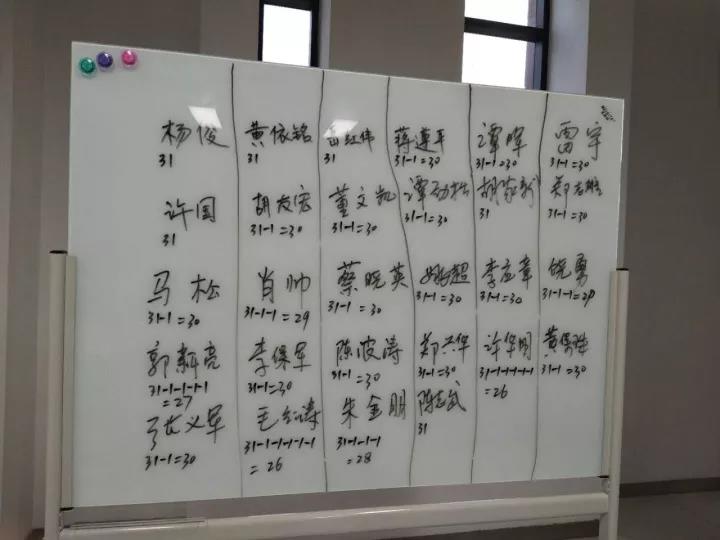 杨俊 黄依铭 雷红伟 蒋建平 谭晖 雷宇
31 31 31 31-1=30 31-1=30 31-1=30
许国 胡友宏 董文凯 谭劲松 胡家新 郑志雄
31 31-1=30 31-1=30 31-1=30 31 31-1=30
马松 肖帅 蔡晓英 姚超 李应章 饶勇
31-1=30 31-1-1=29 31-1=30 31-1=30 31-1=30 31-1-1=29
郭新亮 李保军 陈波涛 郑兴华 许华明 黄保胜
31-1-1-1-1 31-1=30 31-1=30 31-1=30 31-1-1-1-1-1 31-1=30
=27 =26
张义军 毛红涛 朱金明 陈志武
31-1=30 31-1-1-1-1-1 31-1-1-1 31
=26 =28